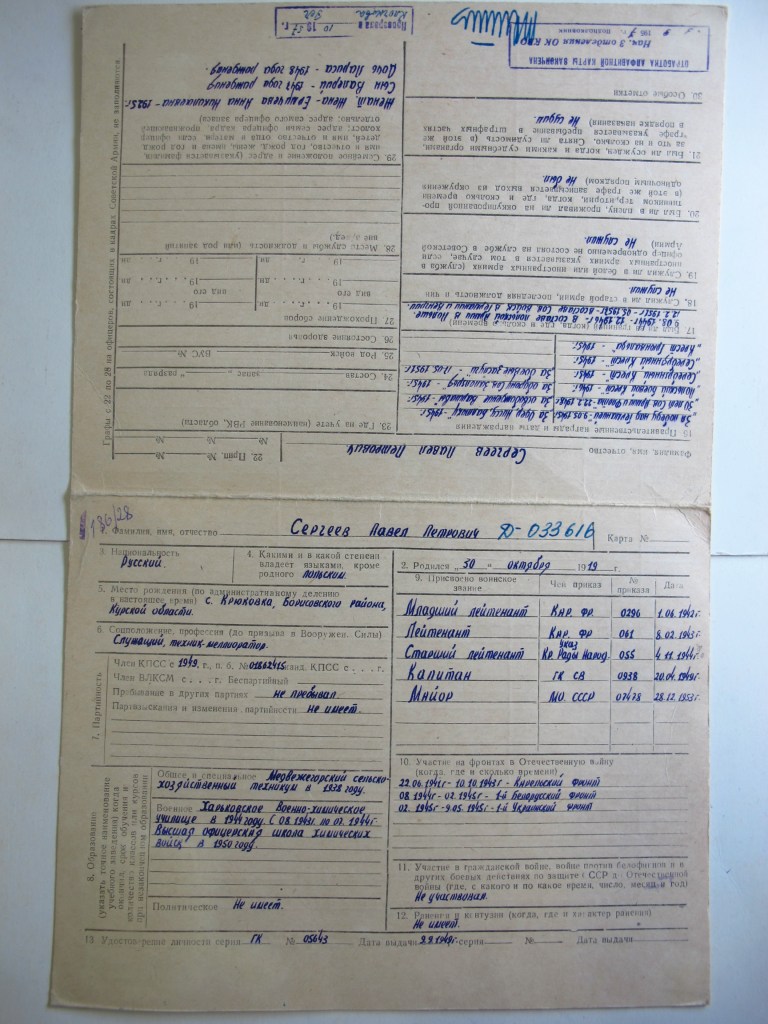 136/28
Фамилия, имя, отчество Сергеев Павел Петрович Д-033616 Карта №
3. Национальность
Русский.
4. Какими и в какой степени
владеет языками, кроме
родного польским.
5. Место рождения (по административному делению
в настоящее время) с. Крюковка, Борисовского района,
Курской области.
6. Соцположение, профессия (до призыва в Вооружен. Силы)
Служащий, техник-мелиоратор.
7. Партийность
Член КПСС с 1949. г., п. б. № 01862415 канд. КПСС с . . . г.
Член ВЛКСМ с . . . г. Беспартийный
Пребывание в других партиях не пребывал.
Партвзыскания и изменения партийности не имеет.
8. Образование
(указать точное наименование
учебного заведения) когда
окончил, срок обучения и
количество классов или курсов
при незаконченном образовании
Общее и специальное Медвежегорский сельско-
хозяйственный техникум в 1938 году.
Военное Харьковское Военно-химическое
училище в 1944 году. С 08.1943г. по 07.1944г.
Высшая офицерская школа химических
войск в 1950 году.
Политическое Не имеет.
2. Родился „ 30 “ октября 1919 г.
9. Присвоено воинское
звание
Чей приказ
№
приказа
Дата
Младший лейтенант Кар. фр. 0296 1.06.1942г.
Лейтенант Кар. фр 061 8.02.1943г.
Старший лейтенант указ Кр. Рады Народ. 055 4.11.1944г.
Капитан ГК СВ 0938 20.04.1949г.
Майор МО СССР 07478 28.12.1953г.
10. Участие на фронтах в Отечественную войну
(когда, где и сколько времени)
22.06.1941г - 10.10.1943г - Карельский фронт
08.1944г - 02.1945г - 1-й Белорусский фронт
02.1945г - 9.05.1945г - 1-й Украинский фронт
11. Участие в гражданской войне, войне против белофиннов и в
других боевых действиях по защите СССР до Отечественной
войны (где, с какого и по какое время, число, месяц и год)
Не участвовал.
12. Ранения и контузии (когда, где и характер ранения)
Не имеет.
13 Удостоверение личности серия ГК № 05643 Дата выдачи 9.9.1949г. серия № Дата выдачи
Фамилия, имя, отчество Сергеев Павел Петрович
16. Правительственные награды и даты награждения
„За победу над Германией“ 9.05.1945г.
„30 лет Сов. Армии и Флота“ 22.2.1948г.
„Серебрянный Крест“ - 1945г.
17. Был ли за границей (когда, где и сколько времени)
18. Служил ли в старой армии, последняя должность и чин
Не служил.
19. Служил ли в белой или иностранных армиях (служба в
иностранных армиях указывается в том случае, если
офицер одновременно не состоял на службе в Советской
Армии) Не служил.
20. Был ли в плену, проживал ли на оккупированной про-
тивником территории, когда, где и сколько времени
(в этой же графе записывается выход из окружения
одиночным порядком) Не был.
21. Был ли осужден, когда и какими судебными органами,
за что и на сколько. Снята ли судимость (в этой же
графе указывается пребывание в штрафных частях
в порядке наказания) Не судим.
30. Особые отметки
ОТРАБОТКА АЛФАВИТНОЙ КАРТЫ ЗАКОНЧЕНА
Нач. 3 отделения ОК КВО
подполковник
Графы с 22 по 28 на офицеров, состоящих в кадрах Советской Армии, не заполняются.
22. Прип. № № №
23. Где на учете (наименование РВК, области)
24. Состав запас „ “ разряд
25. Род войск ВУС №
26. Состояние здоровья
27. Прохождение сборов
вид его
вид его
28. Место службы и должность (или род занятий)
29. Семейное положение и адрес (указывается фамилия,
имя и отчество, год рожд. жены, имена и год рожд.
детей, имя и отчество отца и матери, если офицер
холост; адрес семьи офицера кадра, проживающей
отдельно; адрес самого офицера запаса)
Женат. Жена - Ершицева Анна Николаевна - 1925г.
Сын Валерий - 1947 года рождения
Дочь Лариса - 1948 года рождения.
Проверена